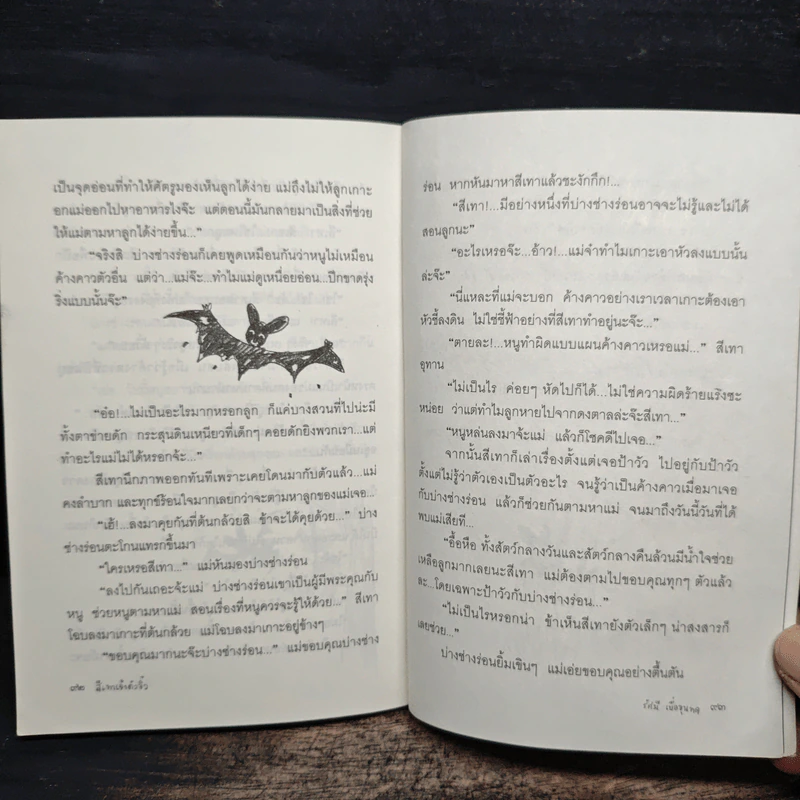 เป็นจุดอ่อนที่ทำให้ศัตรูมองเห็นลูกได้ง่าย แม่ถึงไม่ให้ลูกเกาะ
อกแม่ออกไปหาอาหารไงจ๊ะ แต่ตอนนี้มันกลายมาเป็นสิ่งที่ช่วย
ให้แม่ตามหาลูกได้ง่ายขึ้น..."
"จริงสิ บ่างช่างร่อนก็เคยพูดเหมือนกันว่าหนูไม่เหมือน
ค้างคาวตัวอื่น แต่ว่า...แม่จ๊ะ...ทำไมแม่ดูเหนื่อยอ่อน...ปีกขาดรุ่ง
ริ่งแบบนั้นจ๊ะ"
"อ๋อ!...ไม่เป็นอะไรมากหรอกลูก ก็แค่บางสวนที่ไปน่ะมี
ทั้งตาข่ายดัก กระสุนดินเหนียวที่เด็กๆ คอยดักยิงพวกเรา...แต่
ทำอะไรแม่ไม่ได้หรอกจ้ะ..."
สีเทานึกภาพออกทันทีเพราะเคยโดนมากับตัวแล้ว...แม่
คงลำบาก และทุกข์ร้อนใจมากเลยกว่าจะตามหาลูกของแม่เจอ...
"เฮ้!...ลงมาคุยกันที่ต้นกล้วยสิ ข้าจะได้คุยด้วย..." บ่าง
ช่างร่อนตะโกนแทรกขึ้นมา
"ใครเหรอสีเทา..." แม่หันมองบ่างช่างร่อน
"ลงไปกันเถอะจ้ะแม่ บ่างช่างร่อนเขาเป็นผู้มีพระคุณกับ
หนู ช่วยหนูตามหาแม่ สอนเรื่องที่หนูควรจะรู้ให้ด้วย..." สีเทา
โฉบลงมาเกาะที่ต้นกล้วย แม่โฉบลงมาเกาะอยู่ข้างๆ
"ขอบคุณมากนะจ๊ะบ่างช่างร่อน..." แม่ขอบคุณบ่างช่าง
๙๒ สีเทาเจ้าตัวจิ๋ว
ร่อน หากหันมาหาสีเทาแล้วชะงักกึก!...
"สีเทา!...มีอย่างหนึ่งที่บ่างช่างร่อนอาจจะไม่รู้และไม่ได้
สอนลูกนะ"
"อะไรเหรอจ๊ะ...อ้าว!...แม่จ๋าทำไมเกาะเอาหัวลงแบบนั้น
ล่ะจ๊ะ"
"นี่แหละที่แม่จะบอก ค้างคาวอย่างเราเวลาเกาะต้องเอา
หัวชี้ลงดิน ไม่ใช่ชี้ฟ้าอย่างที่สีเทาทำอยู่นะจ๊ะ..."
"ตายละ!...หนูทำผิดแบบแผนค้างคาวเหรอแม่..." สีเทา
อุทาน
"ไม่เป็นไร ค่อยๆ หัดไปก็ได้...ไม่ใช่ความผิดร้ายแร๊งซะ
หน่อย ว่าแต่ทำไมลูกหายไปจากดงตาลล่ะจ๊ะสีเทา..."
"หนูหล่นลงมาจ้ะแม่ แล้วก็โชคดีไปเจอ..."
จากนั้นสีเทาก็เล่าเรื่องตั้งแต่เจอป้าวัว ไปอยู่กับป้าวัว
ตั้งแต่ไม่รู้ว่าตัวเองเป็นตัวอะไร จนรู้ว่าเป็นค้างคาวเมื่อมาเจอ
กับบ่างช่างร่อน แล้วก็ช่วยกันตามหาแม่ จนมาถึงวันนี้วันที่ได้
พบแม่เสียที...
"อื้อหือ ทั้งสัตว์กลางวันและสัตว์กลางคืนล้วนมีน้ำใจช่วย
เหลือลูกมากเลยนะสีเทา แม่ต้องตามไปขอบคุณทุกๆ ตัวแล้ว
ละ...โดยเฉพาะป้าวัวกับบ่างช่างร่อน..."
"ไม่เป็นไรหรอกน่า ข้าเห็นสีเทายังตัวเล็กๆ น่าสงสารก็
เลยช่วย..."
บ่างช่างร่อนยิ้มเขินๆ แม่เอ่ยขอบคุณอย่างตื้นตัน
๙๓